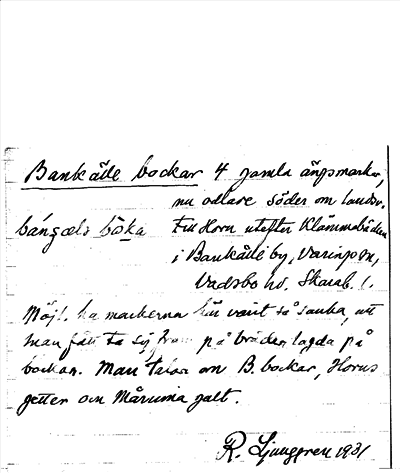 Bankälle bockar 4 gamla ängsmarker,
nu odlare söder om landsv.
bángæls bòka till Horn utefter Klämmabäcken
i Bankälle by, Varinpsn,
Vadsbo hd. Skarab. l.
Möjl. ha markerna här varit så sanka, att
man fått ta sig fram på bräder lagda på
bockar. Man talar om B. bockar, Horns
getter och Måruma galt.
R. Ljunggren 1931